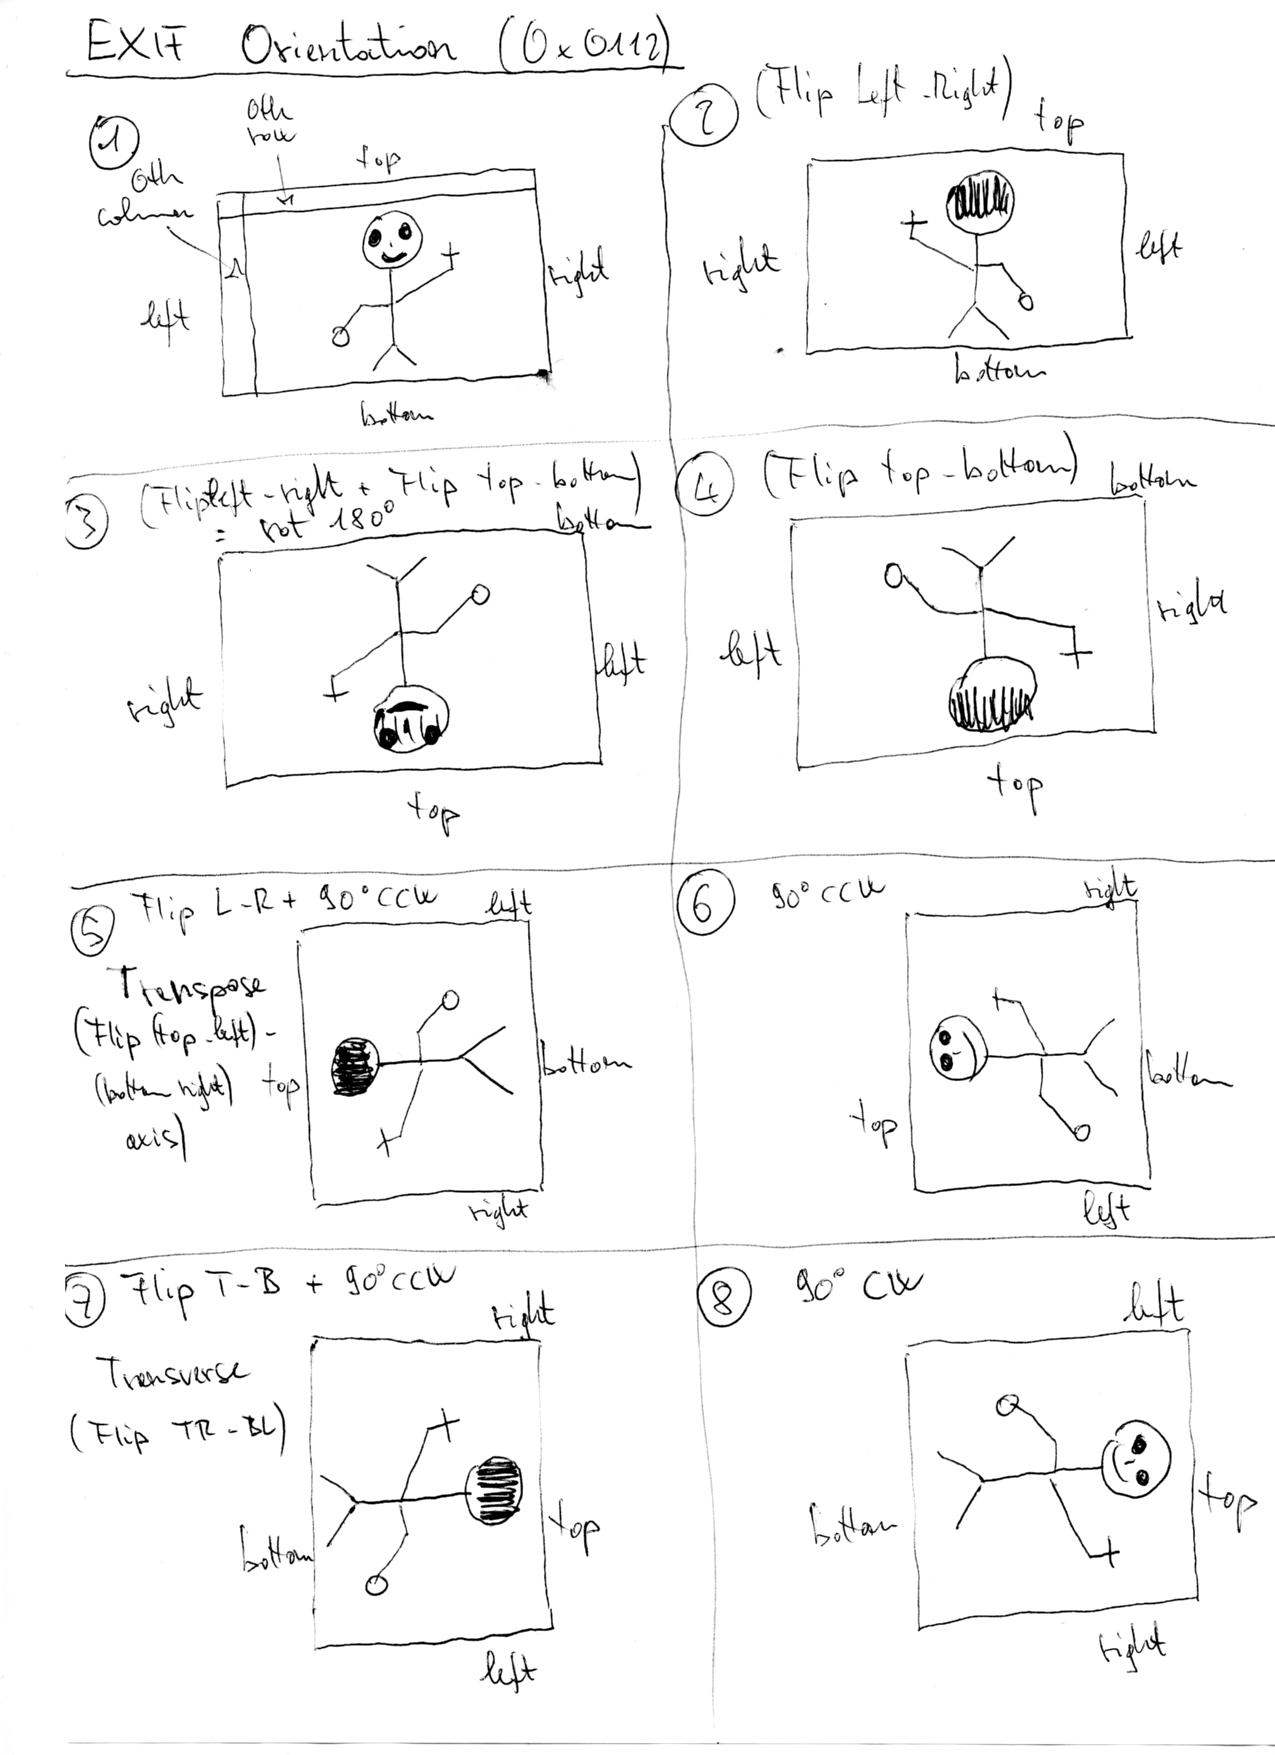 EXIF Orientation (0x0112)
①
0th
row
0th
column
top
left
right
bottom
② (Flip Left-Right)
top
right
left
bottom
③ (Flip left-right + Flip top-bottom)
= rot 180°
bottom
right
left
top
④ (Flip top-bottom)
bottom
left
right
top
⑤ Flip L-R + 90° CCW
left
Transpose
(Flip (top-left)-
(bottom right)
axis)
top
bottom
right
⑥ 90° CCW
right
top
bottom
left
⑦ Flip T-B + 90° CCW
right
Transverse
(Flip TR-BL)
bottom
top
left
⑧ 90° CW
left
bottom
top
right